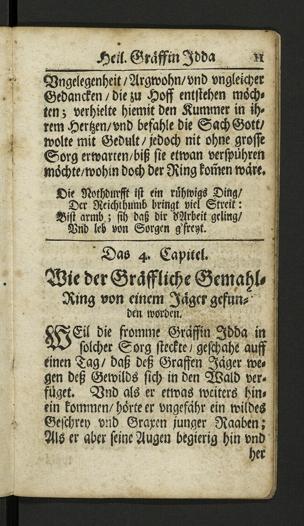 Heil. Gräffin Jdda 11
Vngelegenheit / Argwohn / vnd vngleicher
Gedancken / die zu Hoff entstehen möch-
ten; verhielte hiemit den Kummer in ih-
rem Hertzen / vnd befahle die Sach Gott /
wolte mit Gedult / jedoch nit ohne grosse
Sorg erwarten / biß sie etwan verspühren
möchte / wohin doch der Ring kom̃en wäre.
Die Nothdurfft ist ein rühwigs Ding /
Der Reichthumb bringt viel Streit:
Bist armb; sih daß dir d'Arbeit geling /
Vnd leb von Sorgen g'freyt.
Das 4. Capitel.
Wie der Gräffliche Gemahl-
Ring von einem Jäger gefun-
den worden.
WEil die fromme Gräffin Jdda in
solcher Sorg steckte / geschahe auff
einen Tag / daß deß Graffen Jäger we-
gen deß Gewilds sich in den Wald ver-
füget. Vnd als er etwas weiters hin-
ein kommen / hörte er vngefähr ein wildes
Geschrey vnd Graxen junger Raaben;
Als er aber seine Augen begierig hin vnd
her